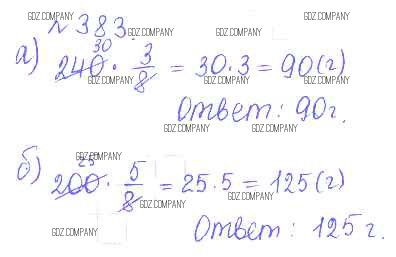 GDZ.COMPANY GDZ.COMPANY
№ 383.
GDZ.COMPANY GDZ.COMPANY
а) 240 30 · 3/8 = 30 · 3 = 90 (г)
GDZ.COMPANY GDZ.COMPANY GDZ.COMPANY
Ответ: 90 г.
GDZ.COMPANY GDZ.COMPANY
GDZ.COMPANY
б) 200 25 · 5/8 = 25 · 5 = 125 (г)
GDZ.COMPANY GDZ.COMPANY
GDZ.COMPANY
Ответ: 125 г.
GDZ.COMPANY